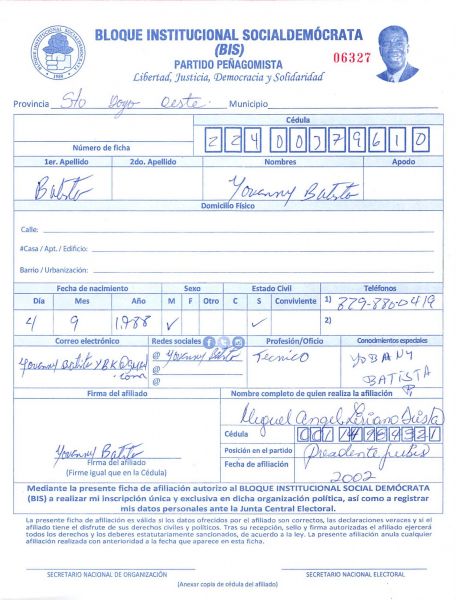 BLOQUE INSTITUCIONAL SOCIALDEMÓCRATA
(BIS)
PARTIDO PEÑAGOMISTA
Libertad, Justicia, Democracia y Solidaridad
06327
Provincia Sto Dgo Oeste. Municipio
Cédula
Número de ficha 224 0007961 0
1er. Apellido 2do. Apellido Nombres Apodo
Batista Yovanny Batista
Domicilio Físico
Calle:
#Casa / Apt. / Edificio:
Barrio / Urbanización:
Fecha de nacimiento Sexo Estado Civil Teléfonos
Día Mes Año M F Otro C S Conviviente 1) 829-880-0419
4 9 1988 ✓ ✓ 2)
Correo electrónico Redes sociales Profesión/Oficio Conocimientos especiales
@ Yovanny Batista Tecnico YOBANY
@ BATISTA
@
Firma del afiliado Nombre completo de quien realiza la afiliación
Miguel Angel
Cédula
Yovanny Batista Posición en el partido
Firma del afiliado Fecha de afiliación
(Firme igual que en la Cédula) 2002
Mediante la presente ficha de afiliación autorizo al BLOQUE INSTITUCIONAL SOCIAL DEMÓCRATA
(BIS) a realizar mi inscripción única y exclusiva en dicha organización política, así como a registrar
mis datos personales ante la Junta Central Electoral.
La presente ficha de afiliación es válida si los datos ofrecidos por el afiliado son correctos, las declaraciones veraces y si el
afiliado tiene el disfrute de sus derechos civiles y políticos. Tras su recepción, sello y firma autorizadas el afiliado ejercerá
todos los derechos y los deberes estatutariamente sancionados, de acuerdo a la ley. La presente afiliación anula cualquier
afiliación realizada con anterioridad a la fecha que aparece en esta ficha.
SECRETARIO NACIONAL DE ORGANIZACIÓN SECRETARIO NACIONAL ELECTORAL
(Anexar copia de cédula del afiliado)